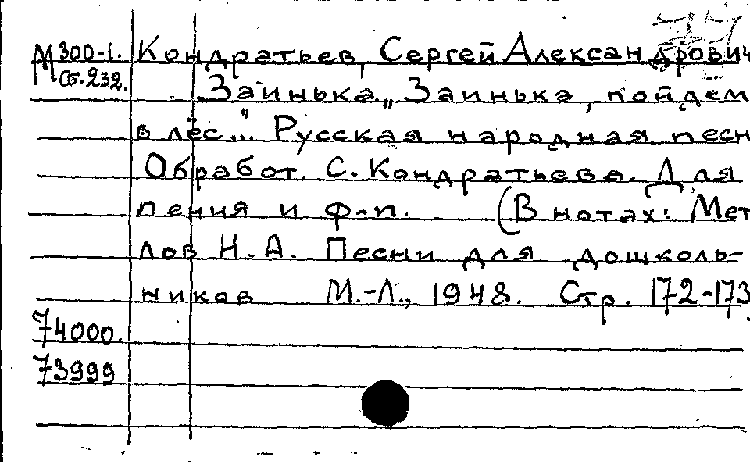 М 300-1. Кондратьев, Сергей Александрович
Ст. 232. Заинька „Заинька, пойдем
в лес..." Русская народная песн
Обработ. С. Кондратьева. Для
пения и ф-п. (В нотах: Мет
лов Н.А. Песни для дошколь-
ников М.-Л., 1948. Стр. 172-173
74000.
73999